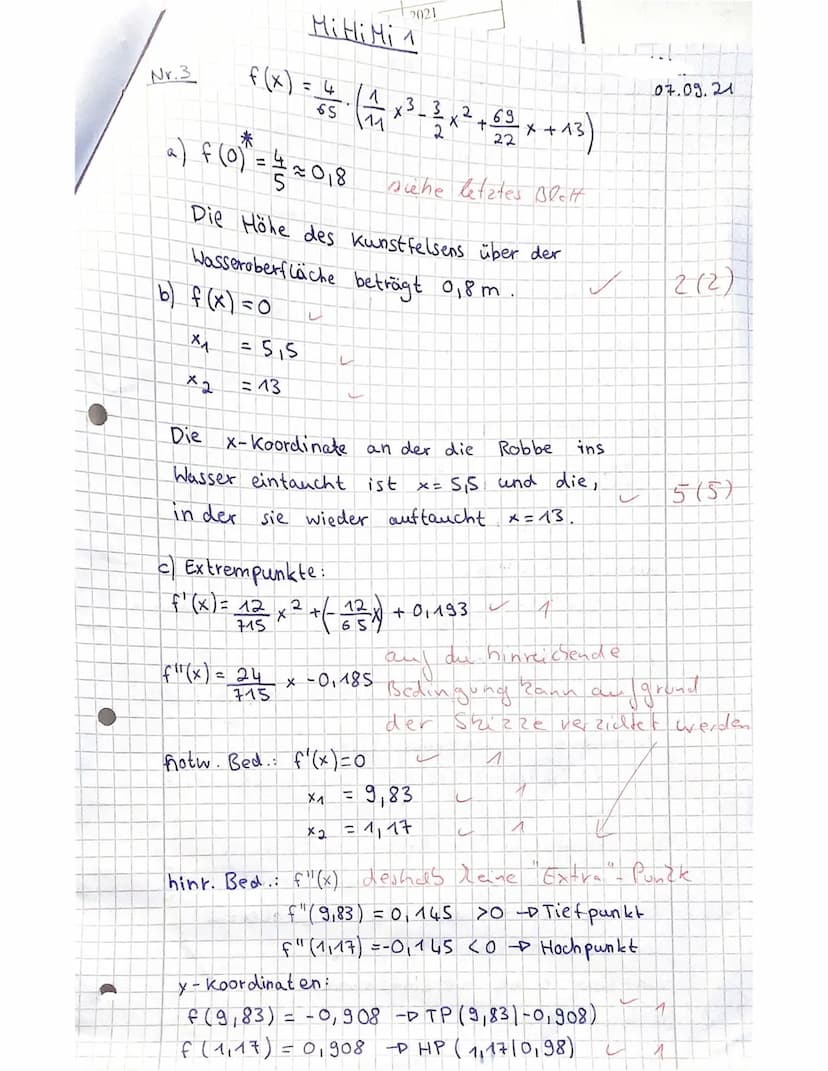 2021
MiHiMi 1
07.09.21
Nr.3 f(x) = 4/65 · (1/11 x³ - 3/2 x² + 69/22 x + 13)
a) f(0)* = 4/5 ≈ 0,8 siehe letztes Blatt
Die Höhe des Kunstfelsens über der
Wasseroberfläche beträgt 0,8 m. ✓ 2(2)
b) f(x) = 0 ✓
x₁ = 5,5 ✓
x₂ = 13 ✓
Die x-Koordinate an der die Robbe ins
Wasser eintaucht ist x = 5,5 und die,
in der sie wieder auftaucht x = 13. ✓ 5(5)
c) Extrempunkte:
f'(x) = 12/715 x² + (- 12/65 x) + 0,193 ✓ 1
f''(x) = 24/715 x - 0,185
auf die hinreichende
Bedingung kann aufgrund
der Skizze verzichtet werden
notw. Bed.: f'(x) = 0 ✓ 1
x₁ = 9,83 ✓ 1
x₂ = 1,17 ✓ 1
hinr. Bed.: f''(x) deshalb keine "Extra"-Punkte
f''(9,83) = 0,145 > 0 → Tiefpunkt
f''(1,17) = -0,145 < 0 → Hochpunkt
y-Koordinaten:
f(9,83) = -0,908 → TP (9,83|-0,908) ✓ 1
f(1,17) = 0,908 → HP (1,17|0,98) ✓ 1